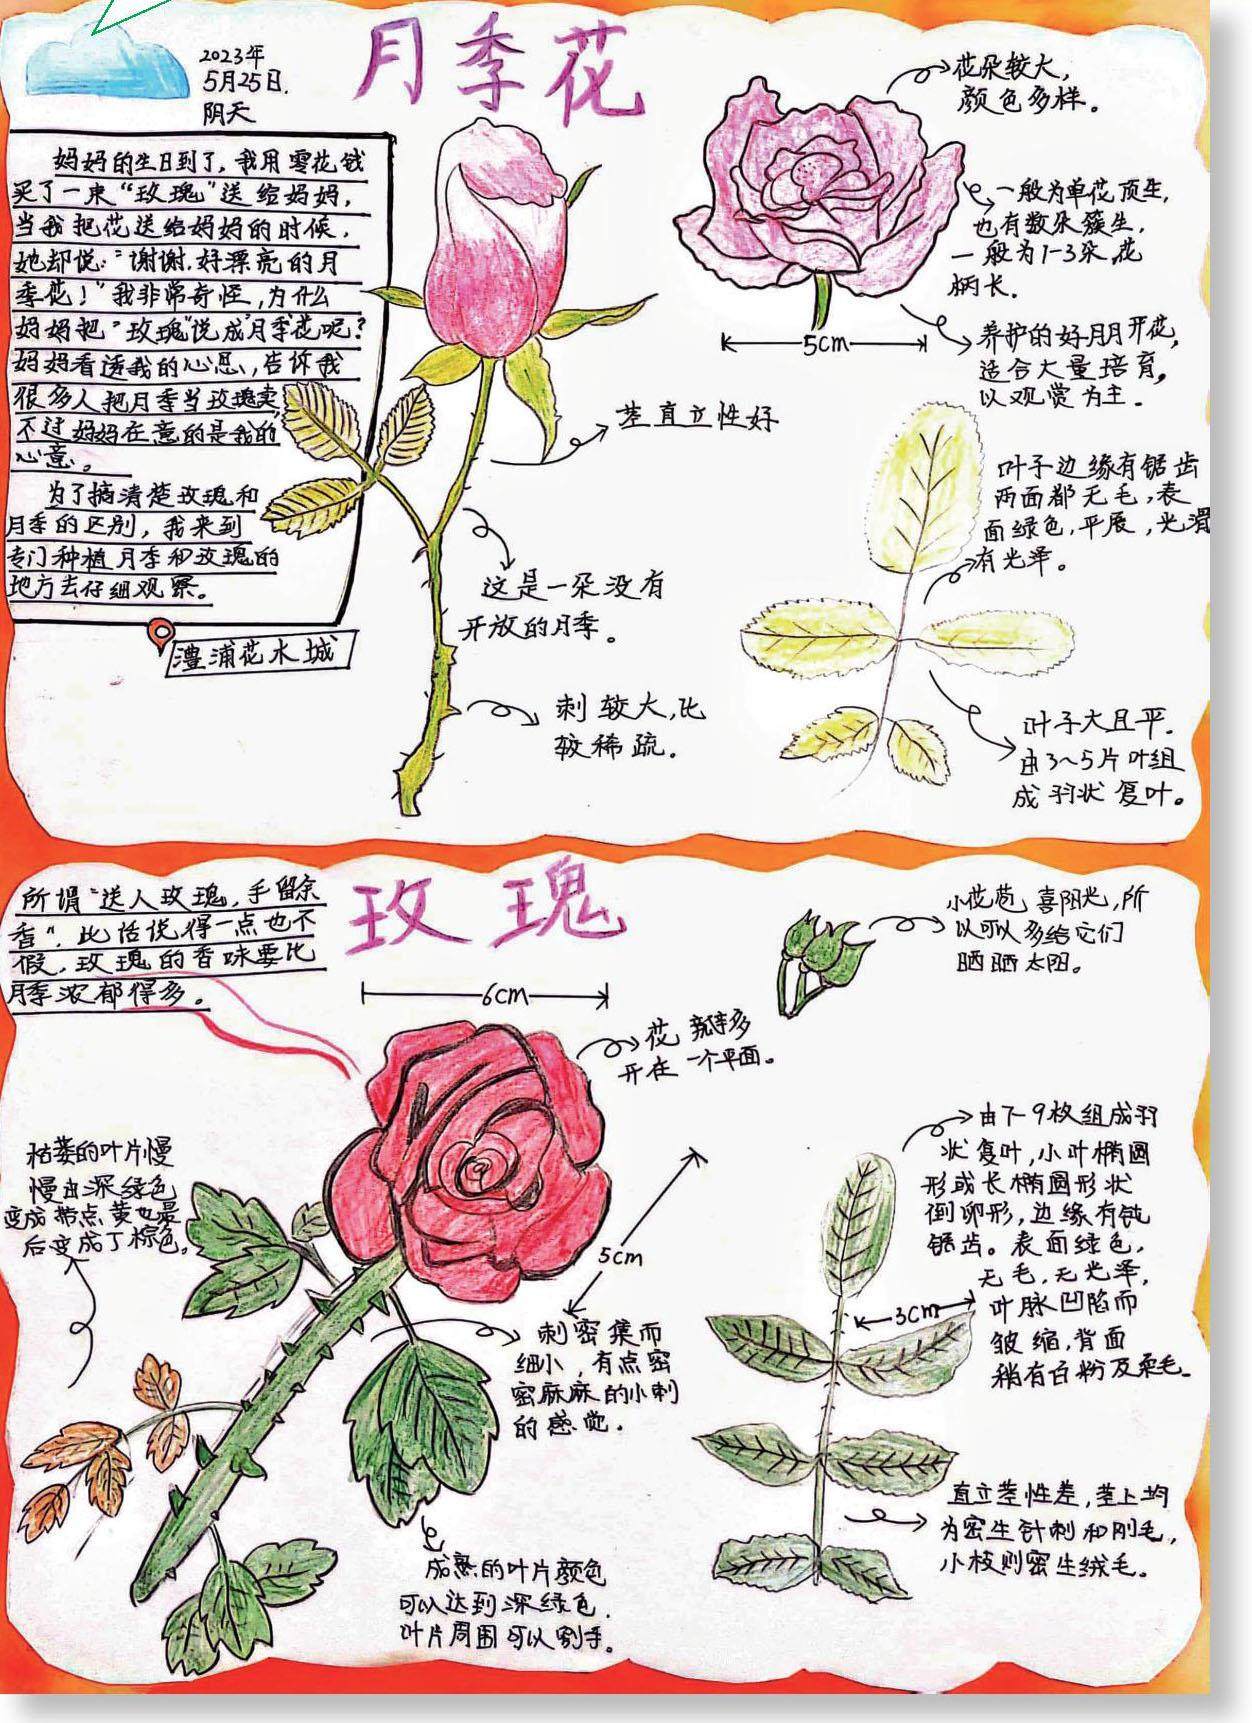 月季花
2023年
5月25日.
阴天
妈妈的生日到了,我用零花钱
买了一束“玫瑰”送给妈妈,
当我把花送给妈妈的时候,
她却说:“谢谢.好漂亮的月
季花!”我非常奇怪,为什么
妈妈把“玫瑰”说成“月季”花呢?
妈妈看透我的心思,告诉我
很多人把月季当玫瑰卖,
不过妈妈在意的是我的
心意。
为了搞清楚玫瑰和
月季的区别,我来到
专门种植月季和玫瑰的
地方去仔细观察。
澧浦花木城
花朵较大,
颜色多样。
一般为单花顶生,
也有数朵簇生,
一般为1-3朵,花
柄长.
5cm
养护的好月月开花,
适合大量培育,
以观赏为主.
茎直立性好
叶子边缘有锯齿
两面都无毛,表
面绿色,平展,光滑
有光泽。
这是一朵没有
开放的月季。
刺较大,比
较稀疏.
叶子大且平.
由3~5片叶组
成羽状复叶。
玫瑰
所谓“送人玫瑰,手留余
香”.此话说得一点也不
假,玫瑰的香味要比
月季浓郁得多。
6cm
小花苞喜阳光,所
以可以多给它们
晒晒太阳。
花瓣多
开在一个平面。
枯萎的叶片慢
慢由深绿色
变成带点黄也最
后变成了棕色。
5cm
由7-9枚组成羽
状复叶,小叶椭圆
形或长椭圆形状
倒卵形,边缘有钝
锯齿。表面绿色,
无毛,无光泽,
叶脉凹陷而
皱缩,背面
稍有白粉及柔毛。
3cm
刺密集而
细小,有点密
密麻麻的小刺
的感觉.
直立茎性差,茎上均
为密生针刺和刚毛,
小枝则密生绒毛.
成熟的叶片颜色
可以达到深绿色.
叶片周围可以割手。